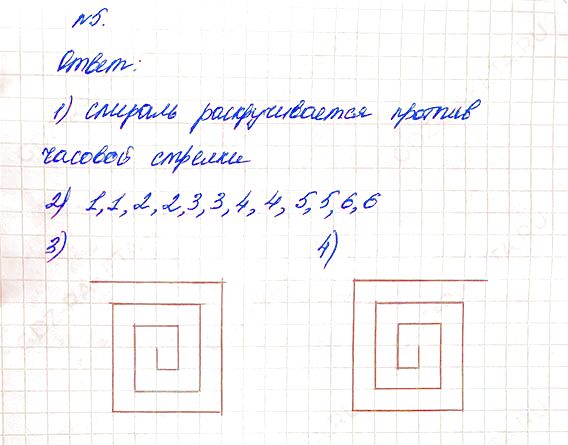 №5.
Ответ:
1) спираль раскручивается против
часовой стрелки
2) 1, 1, 2, 2, 3, 3, 4, 4, 5, 5, 6, 6
3) 4)